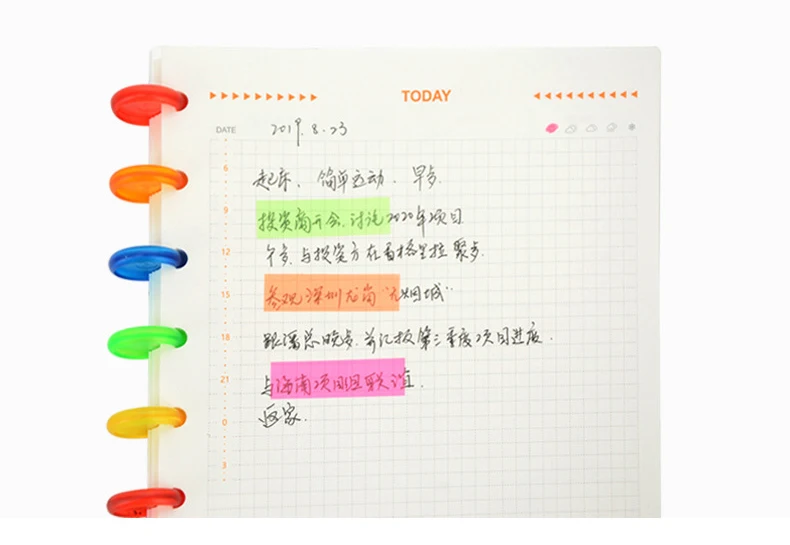 TODAY
DATE 2019.8.23
6
起床、简单运动、早步.
9
投资商开会、讨论2020年项目
12
午步、与投资方在香格里拉聚步.
15
参观深圳龙岗“大城”
18
跟潘总晚步、并汇报第三季度项目进度.
21
与海南项目组联谊.
0
返家.
3